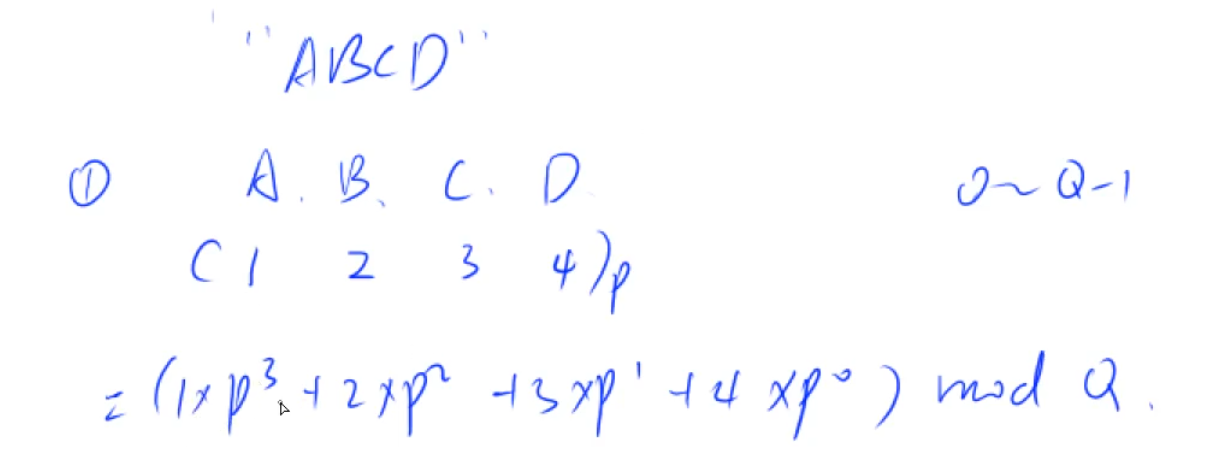 "ABCD"
① A. B、 C. D. 0~Q-1
(1 2 3 4)p
=(1×p³+2×p²+3×p¹+4×p⁰) mod Q.